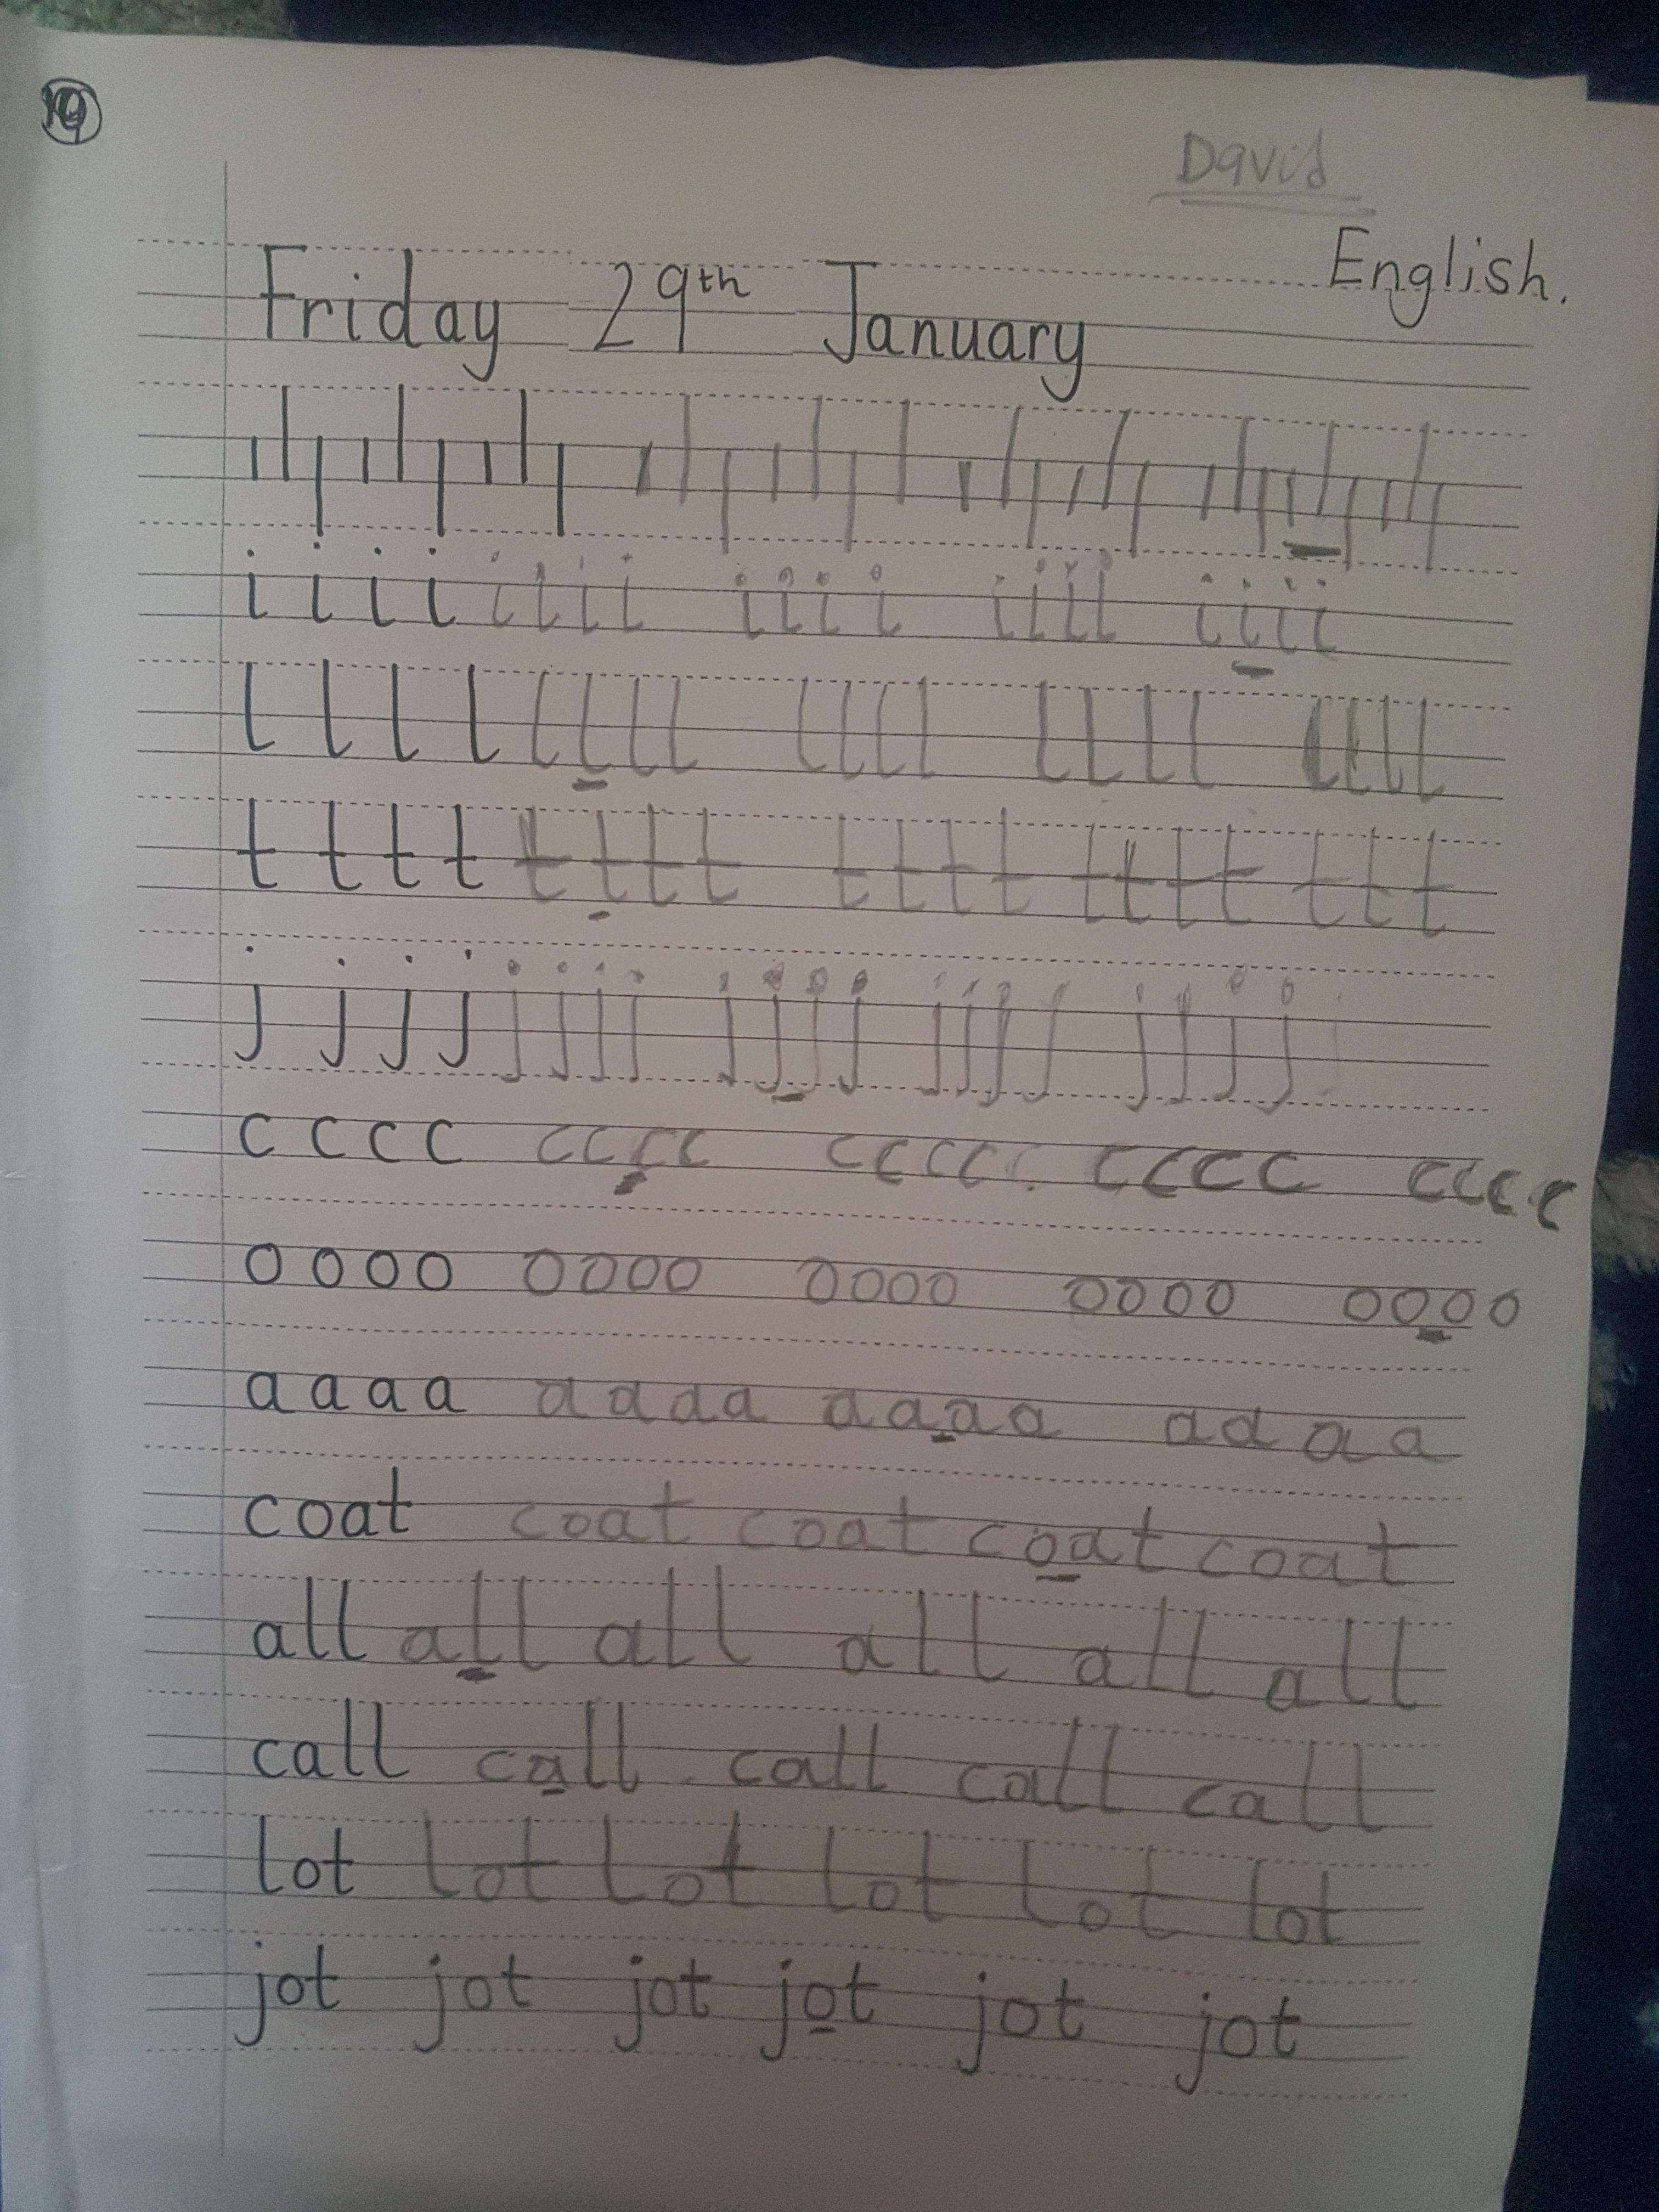 David
English.
Friday 29th January
i i i i i i i i i i i i i i i i i i i i
l l l l l l l l l l l l l l l l l l l l
t t t t t t t t t t t t t t t t t t t
j j j j j j j j j j j j j j j j j j j j
c c c c c c c c c c c c c c c c c c c c
o o o o o o o o o o o o o o o o o o o o
a a a a a a a a a a a a a a a a
coat coat coat coat coat
all all all all all all
call call call call call
lot lot lot lot lot lot
jot jot jot jot jot jot